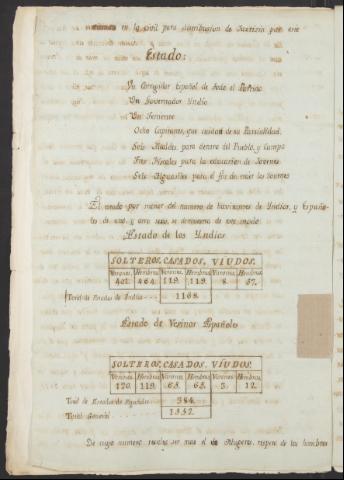 en lo Civil para distribucion de Justicia por este
Estado:
Un Corregidor Español de todo el Partido
Un Governador Yndio
Un Teniente
Ocho Capitanes, que cuidan de su Parcialidad
Seis Alcaldes, para dentro del Pueblo, y Campo
Tres Fiscales para la educacion de Jovenes
Siete Alguaciles para el fin de
El modo por menor del numero de havitantes de Yndios, y Españo-
les de uno, y otro sexo, se demuestra de este modo:
Estado de los Yndios
SOLTEROS, CASADOS, VIUDOS.
Varones, Hembras, Varones, Hembras, Varones, Hembras,
464. 119. 119. 8. 57.
Total de Estados de Yndios 1168.
Estado de Vecinos Españoles
SOLTEROS, CASADOS, VIUDOS.
Varones, Hembras, Varones, Hembras, Varones, Hembras,
120. 119. 65. 65. 3. 12.
Total de Estados de Españoles 384.
Total General 1552.
De cuyo numero resulta ser mas el de Mugeres, respecto de los hombres